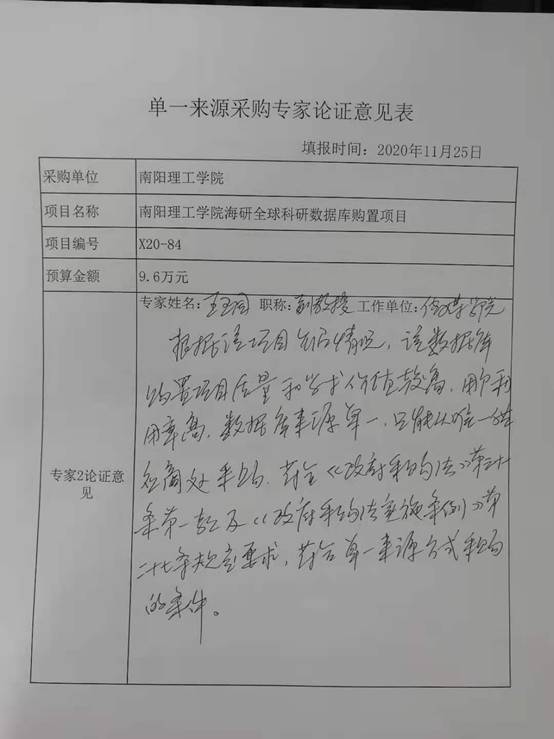 单一来源采购专家论证意见表
填报时间：2020年11月25日
采购单位 南阳理工学院
项目名称 南阳理工学院海研全球科研数据库购置项目
项目编号 X20-84
预算金额 9.6万元
专家姓名： 职称：副教授 工作单位：传媒学院
根据该项目公示情况，该数据库
购置项目质量和学术价值较高，用户利
用率高，数据库来源单一，只能从唯一供
应商处采购，符合《政府采购法》第三十一
条第一款及《政府采购法实施条例》第
二十七条规定要求，符合单一来源方式采购
的条件。
专家2论证意
见